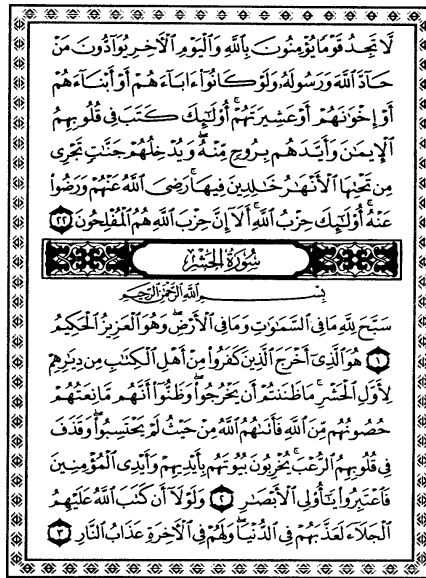 لَّا تَجِدُ قَوْمًا يُؤْمِنُونَ بِاللَّهِ وَالْيَوْمِ الْآخِرِ يُوَآدُّونَ مَنْ
حَآدَّ اللَّهَ وَرَسُولَهُ وَلَوْ كَانُوٓا۟ ءَابَآءَهُمْ أَوْ أَبْنَآءَهُمْ
أَوْ إِخْوَٰنَهُمْ أَوْ عَشِيرَتَهُمْ ۚ أُو۟لَٰٓئِكَ كَتَبَ فِى قُلُوبِهِمُ
الْإِيمَٰنَ وَأَيَّدَهُم بِرُوحٍ مِّنْهُ ۖ وَيُدْخِلُهُمْ جَنَّٰتٍ تَجْرِى
مِن تَحْتِهَا الْأَنْهَٰرُ خَٰلِدِينَ فِيهَا ۚ رَضِىَ اللَّهُ عَنْهُمْ وَرَضُوا۟
عَنْهُ ۚ أُو۟لَٰٓئِكَ حِزْبُ اللَّهِ ۚ أَلَآ إِنَّ حِزْبَ اللَّهِ هُمُ الْمُفْلِحُونَ ٢٢
سُورَةُ الْحَشْرِ
بِسْمِ اللَّهِ الرَّحْمَٰنِ الرَّحِيمِ
سَبَّحَ لِلَّهِ مَا فِى السَّمَٰوَٰتِ وَمَا فِى الْأَرْضِ ۖ وَهُوَ الْعَزِيزُ الْحَكِيمُ
١ هُوَ الَّذِىٓ أَخْرَجَ الَّذِينَ كَفَرُوا۟ مِنْ أَهْلِ الْكِتَٰبِ مِن دِيَٰرِهِمْ
لِأَوَّلِ الْحَشْرِ ۚ مَا ظَنَنتُمْ أَن يَخْرُجُوا۟ ۖ وَظَنُّوٓا۟ أَنَّهُم مَّانِعَتُهُمْ
حُصُونُهُم مِّنَ اللَّهِ فَأَتَىٰهُمُ اللَّهُ مِنْ حَيْثُ لَمْ يَحْتَسِبُوا۟ ۖ وَقَذَفَ
فِى قُلُوبِهِمُ الرُّعْبَ ۚ يُخْرِبُونَ بُيُوتَهُم بِأَيْدِيهِمْ وَأَيْدِى الْمُؤْمِنِينَ
فَاعْتَبِرُوا۟ يَٰٓأُو۟لِى الْأَبْصَٰرِ ٢ وَلَوْلَآ أَن كَتَبَ اللَّهُ عَلَيْهِمُ
الْجَلَآءَ لَعَذَّبَهُمْ فِى الدُّنْيَا ۖ وَلَهُمْ فِى الْآخِرَةِ عَذَابُ النَّارِ ٣